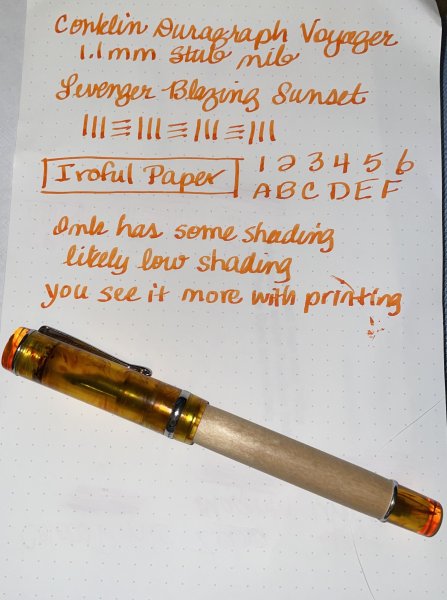 Conklin Duragraph Voyager
1.1mm Stub nib
Levenger Blazing Sunset
Iroful Paper
1 2 3 4 5 6
A B C D E F
Ink has some shading
likely low shading
you see it more with printing